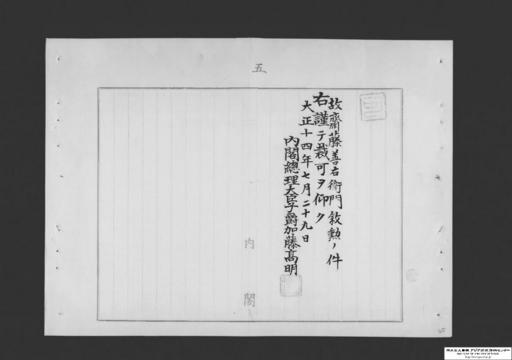 五
故齋藤善右衛門敍勲ノ件
右謹テ裁可ヲ仰ク
大正十四年七月二十九日
内閣總理大臣子爵加藤高明
内閣